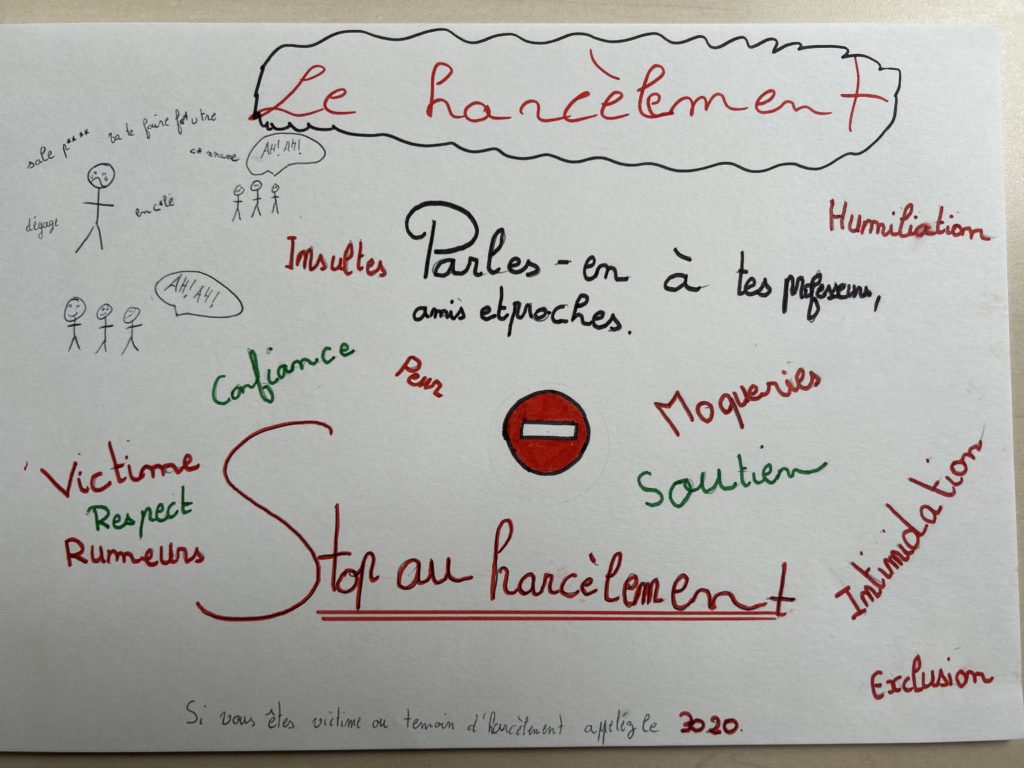 Le harcèlement
sale p****
va te faire f*utre
c*nnasse
AH! AH!
dégage
enc*lé
Humiliation
Insultes
Parles-en à tes professeurs,
amis et proches.
AH! AH!
Confiance
Peur
Moqueries
Soutien
Victime
Respect
Rumeurs
Stop au harcèlement
Intimidation
Exclusion
Si vous êtes victime ou temoin d'harcèlement appeléz le 3020.